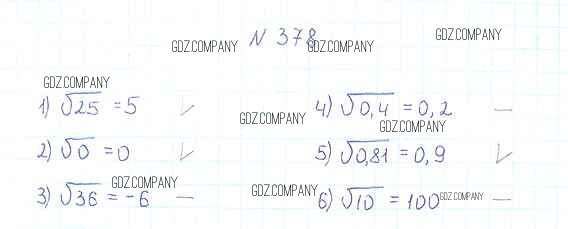 N 378
GDZ.COMPANY GDZ.COMPANY GDZ.COMPANY
GDZ.COMPANY
1) √25 = 5 ✓
4) √0,4 = 0,2 —
GDZ.COMPANY GDZ.COMPANY
2) √0 = 0 ✓
5) √0,81 = 0,9 ✓
GDZ.COMPANY GDZ.COMPANY GDZ.COMPANY
3) √36 = -6 —
6) √10 = 100 —